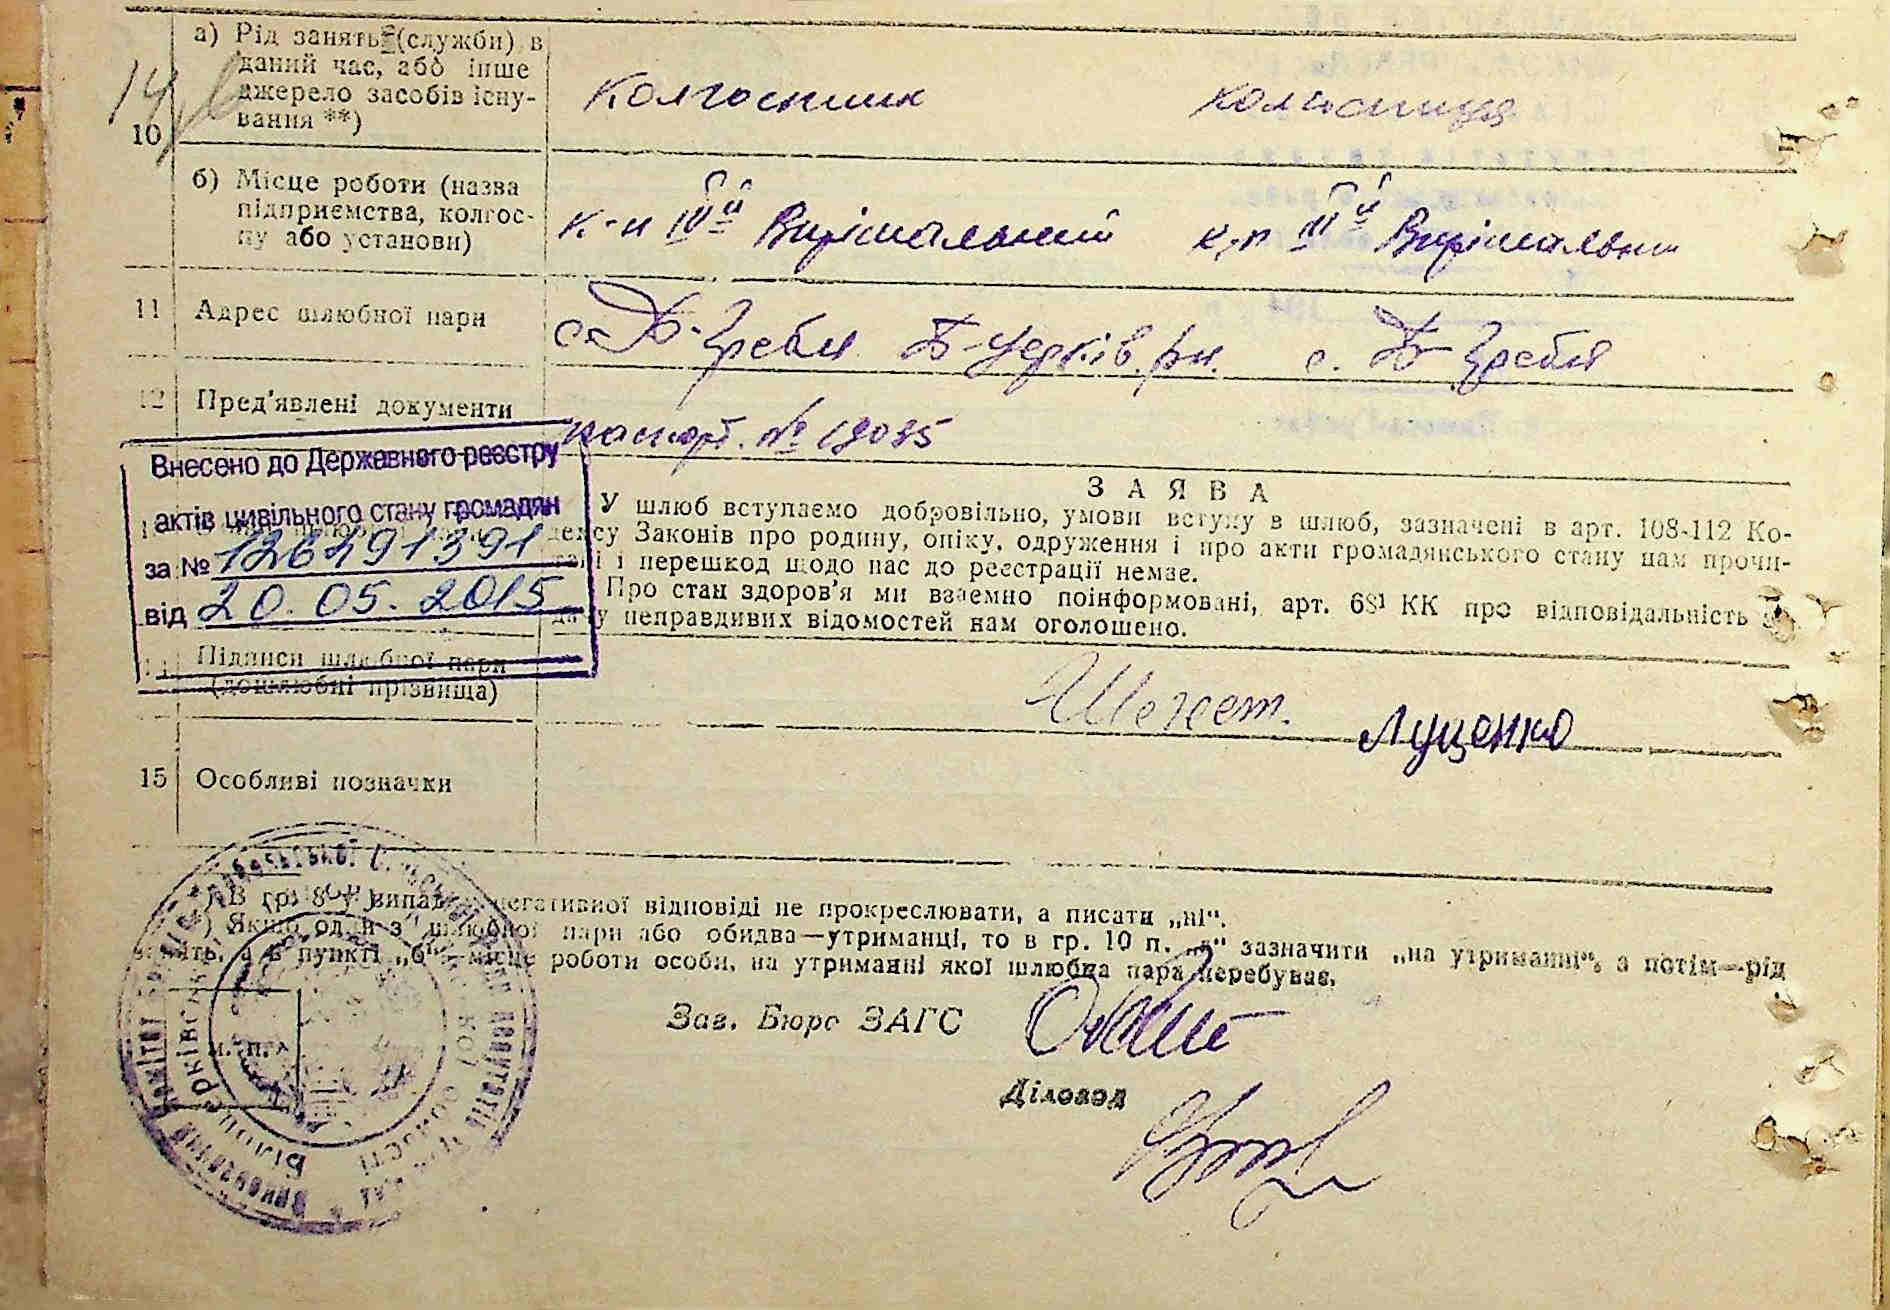 14
10
а) Рід занять (служби) в
даний час, або інше
джерело засобів існу-
вання **)
Колгоспник колгоспниця
б) Місце роботи (назва
підприємства, колгос-
пу або установи)
к-п Вирішальний к-п Вирішальни
11 Адрес шлюбної пари
с. Б-Гребля Б-Церків. рн. с. Б-Гребля
12 Пред'явлені документи
паспорт. № 19085
Внесено до Державного реєстру
актів цивільного стану громадян
за № 126491391
від 20.05.2015
ЗАЯВА
У шлюб вступаємо добровільно, умови вступу в шлюб, зазначені в арт. 108-112 Ко-
дексу Законів про родину, опіку, одруження і про акти громадянського стану нам прочи-
тані і перешкод щодо нас до реєстрації немає.
Про стан здоров'я ми взаємно поінформовані, арт. 68¹ КК про відповідальність за
дачу неправдивих відомостей нам оголошено.
14 Підписи шлюбної пари
(дошлюбні прізвища)
Луценко
15 Особливі позначки
*) В гр. 8 у випадку негативної відповіді не прокреслювати, а писати „ні“.
**) Якщо один з шлюбної пари або обидва—утриманці, то в гр. 10 п. „а“ зазначити „на утриманні“, а потім—рід
занять, а в пункті „б“—місце роботи особи, на утриманні якої шлюбна пара перебуває.
Зав. Бюро ЗАГС
М. П.
Діловод